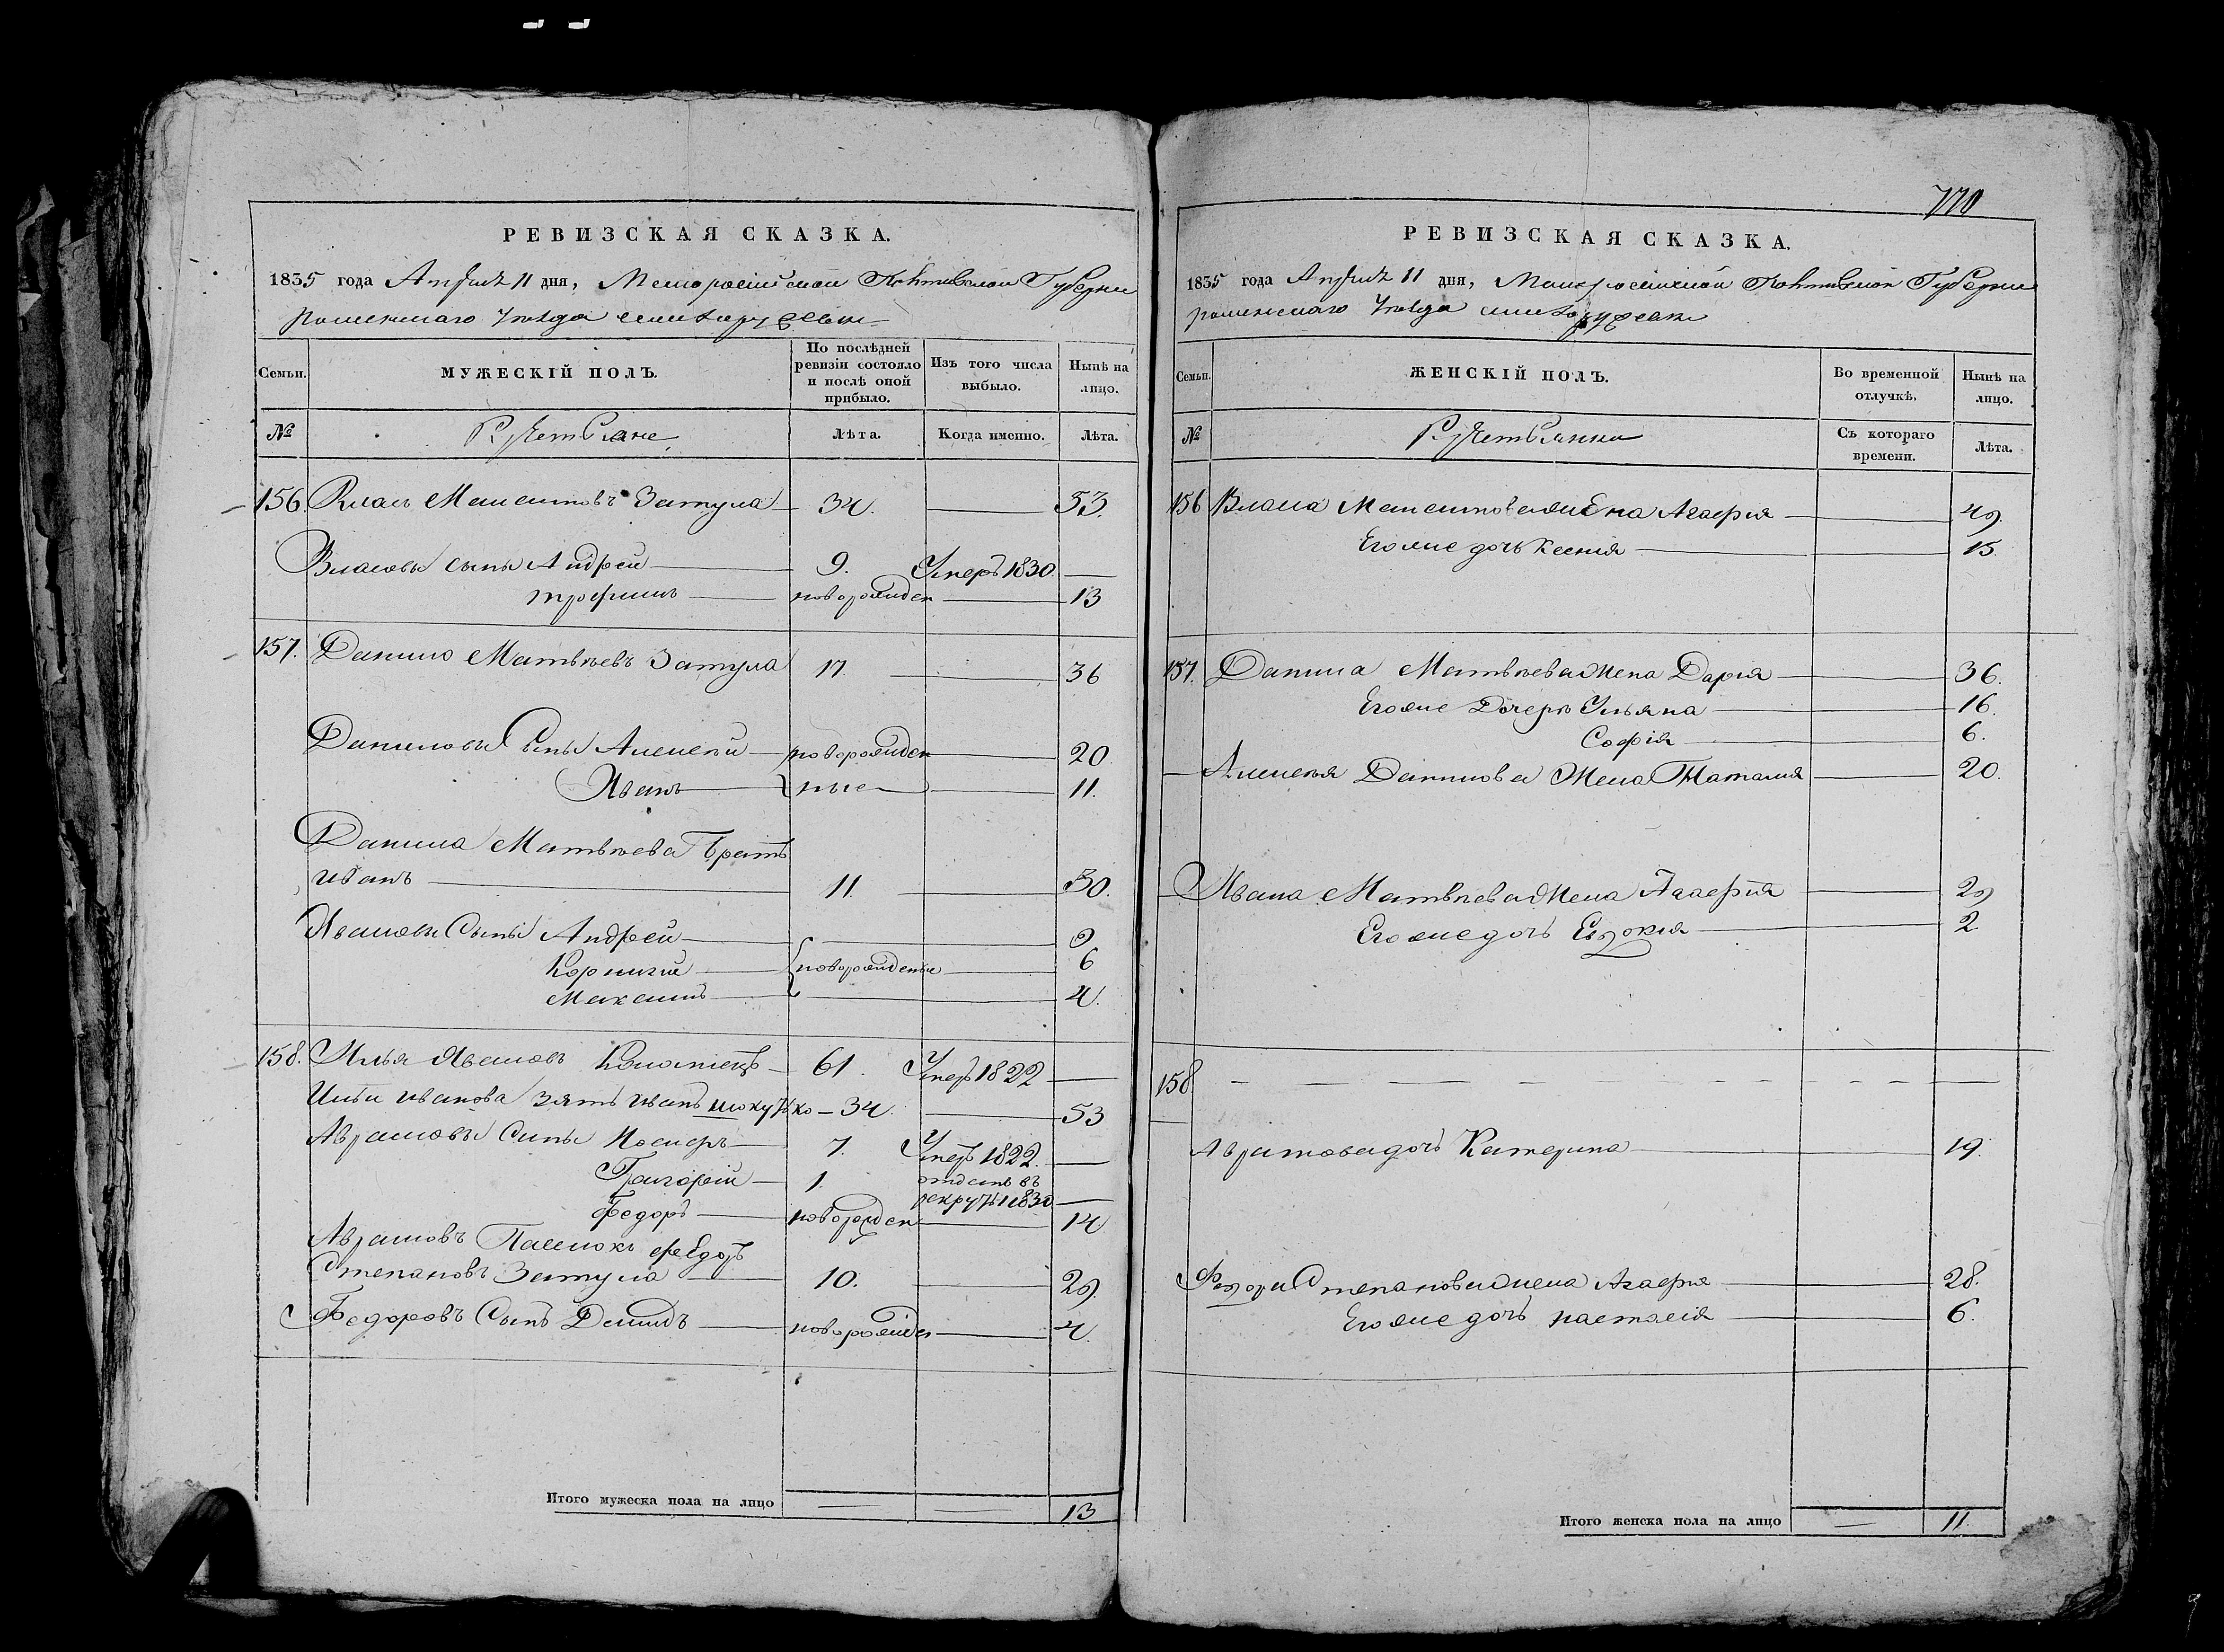 РЕВИЗСКАЯ СКАЗКА.
1835 года Апреля 11 дня, Малороссійской Полтавской Губерніи
роменскаго уѣзда
Семьи.
МУЖЕСКІЙ ПОЛЪ.
По послѣдней ревизіи состояло и послѣ оной прибыло.
Изъ того числа выбыло.
Нынѣ на лицо.
№
Лѣта.
Когда именно.
Лѣта.
156. Власъ Затула 34. 53.
Власовы сыны Андрей 9. Умеръ 1830.
трофимъ новорожден 13
157. Данило Матвѣевъ Затула 17. 36
Даниловы Сыны Алексѣй новорожден 20.
Иванъ ные 11.
Данила Матвѣева Братъ
иванъ 11. 30.
Ивановы Сыны Андрей 9
Корнилій новорожденые 6
Максимъ 4.
158. Илья Ивановъ 61. Умеръ 1822
Ильи иванова зять 34. 53
Аврамовы Сыны Иосифъ 7. Умеръ 1822.
Григорій 1. отданъ въ
рекруты 1830
Федоръ новорожден 14
Аврамовъ Пасынокъ Федоръ
Степановъ Затула 10. 29.
Федоровъ Сынъ Демидъ новорожден 4.
Итого мужеска пола на лицо 13
770
РЕВИЗСКАЯ СКАЗКА.
1835 года Апреля 11 дня, Малоросійской Полтавской Губерніи
роменскаго уѣзда
Семьи.
ЖЕНСКІЙ ПОЛЪ.
Во временной отлучкѣ.
Нынѣ на лицо.
№
Съ котораго времени.
Лѣта.
156 Власа жена Агафія 49.
Егоже дочь Ксенія 15.
157. Данила Матвѣева жена Дарія 36.
Егоже Дочери Ульяна 16.
Софія 6.
Алексѣя Данилова Жена Наталия 20.
Ивана Матвѣева Жена Агафія 29
Егоже дочь Евдокія 2.
158.
Аврамова дочь Катерина 19.
Федора Степанова жена Агафія 28.
Егоже дочь настасія 6.
Итого женска пола на лицо 11.